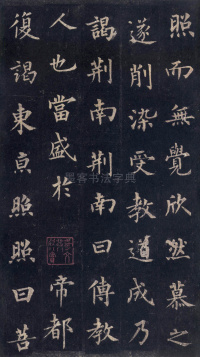 照而無覺欣然慕之
遂削染受教道成乃
謁荆南荆南曰傳教
人也當盛於 帝都
復謁東亰照照曰菩
墨客书法字典